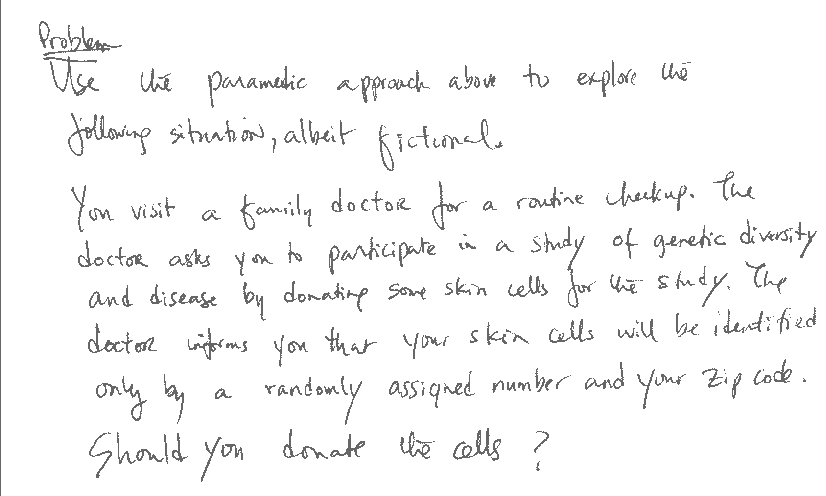 Problem
Use the paramedic approach above to explore the
following situation, albeit fictional.
You visit a family doctor for a routine checkup. The
doctor asks you to participate in a study of genetic diversity
and disease by donating some skin cells for the study. The
doctor informs you that your skin cells will be identified
only by a randomly assigned number and your zip code.
Should you donate the cells ?